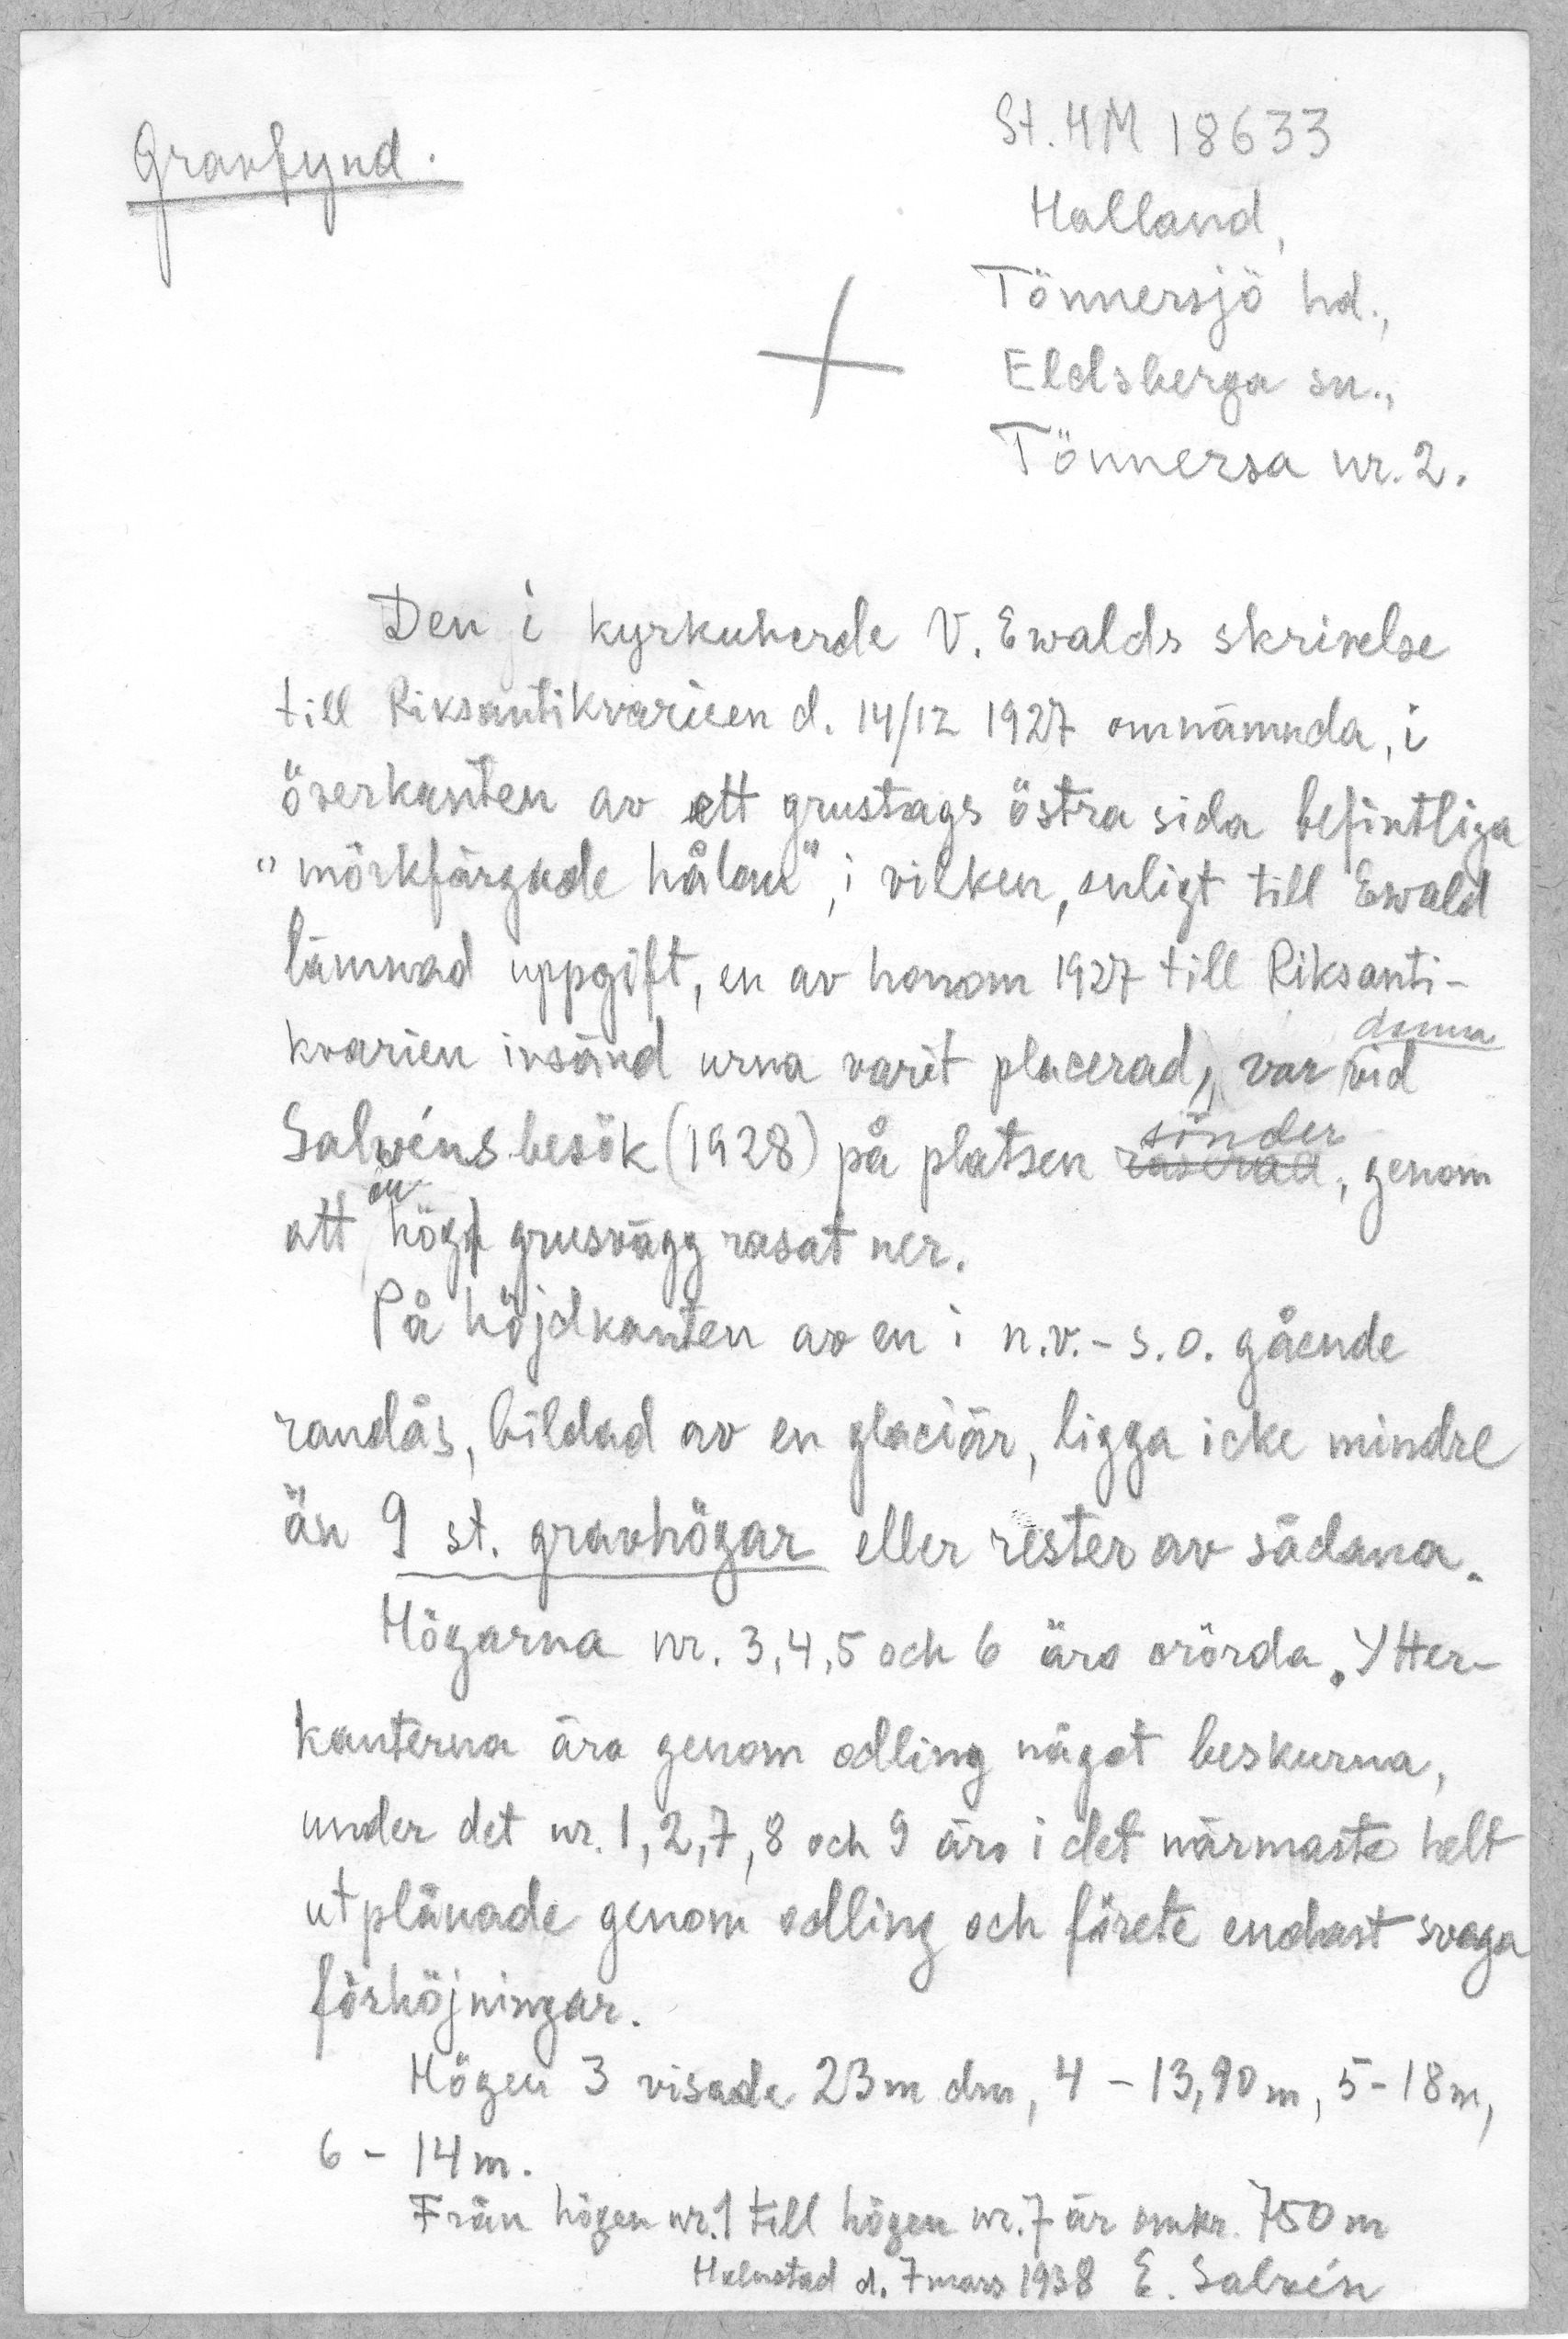 Gravfynd.
St. HM 18633
Halland,
Tönnersjö hd.,
Eldsberga sn.,
Tönnersa nr. 2.
Den i kyrkoherde V. Ewalds skrivelse
till Riksantikvarien d. 14/12 1927 omnämnda, i
överkanten av ett grustags östra sida befintliga
"mörkfärgade hålan", i vilken, enligt till Ewald
lämnad uppgift, en av honom 1927 till Riksanti-
kvarien insänd urna varit placerad, var denna vid
Salvéns besök (1928) på platsen raserad sönder, genom
att en hög grusvägg rasat ner.
På höjdkanten av en i n.v.-s.o. gående
randås, bildad av en glaciär, ligga icke mindre
än 9 st. gravhögar eller rester av sådana.
Högarna nr. 3,4,5 och 6 äro orörda. Ytter-
kanterna äro genom odling något beskurna,
under det nr. 1, 2, 7, 8 och 9 äro i det närmaste helt
utplånade genom odling och förete endast svaga
förhöjningar.
Högen 3 visade 23 m dm, 4 - 13,90 m, 5 - 18 m,
6 - 14 m.
Från högen nr. 1 till högen nr. 7 är omkr. 750 m
Halmstad d. 7 mars 1938 E. Salvén